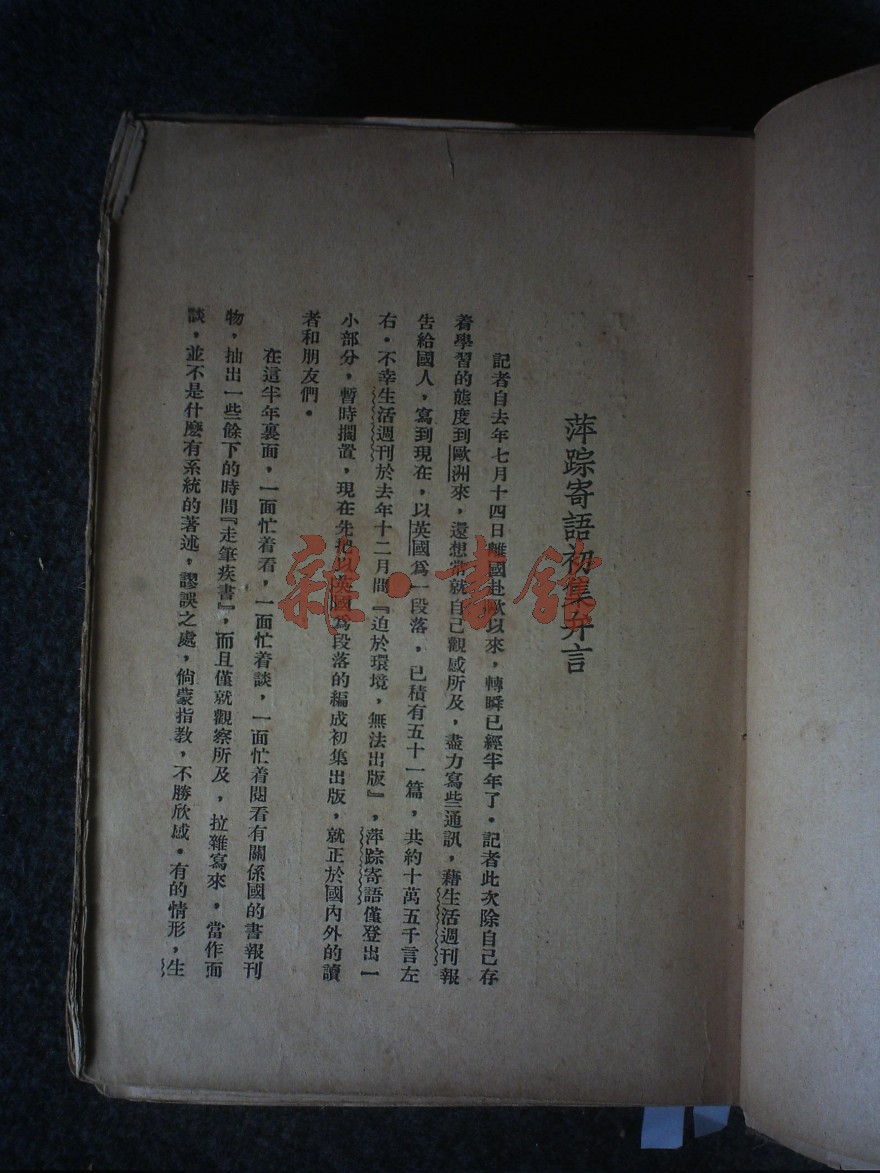 萍踪寄語初集弁言
記者自去年七月十四日離國赴歐以來，轉瞬已經半年了。記者此次除自己存
着學習的態度到歐洲來，還想常就自己觀感所及，盡力寫些通訊，藉生活週刊報
告給國人，寫到現在，以英國爲一段落，已積有五十一篇，共約十萬五千言左
右。不幸生活週刊於去年十二月間『迫於環境，無法出版』，萍踪寄語僅登出一
小部分，暫時擱置，現在先把以英國爲段落的編成初集出版，就正於國內外的讀
者和朋友們。
在這半年裏面，一面忙着看，一面忙着談，一面忙着閱看有關係國的書報刊
物，抽出一些餘下的時間『走筆疾書』，而且僅就觀察所及，拉雜寫來，當作面
談，並不是什麽有系統的著述，謬誤之處，倘蒙指教，不勝欣感。有的情形，生
雜·書館